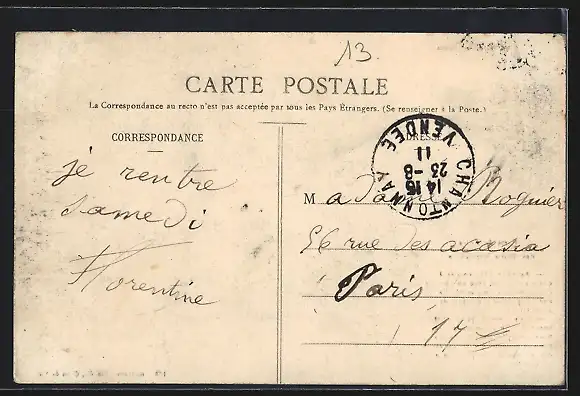 13.
CARTE POSTALE
La Correspondance au recto n'est pas acceptée par tous les Pays Étrangers. (Se renseigner à la Poste.)
CORRESPONDANCE
ADRESSE
je rentre
samedi
Florentine
CHANTONNAY VENDEE
14 15
23-8
11
Madame Rognier
56 rue des acasia
Paris
17